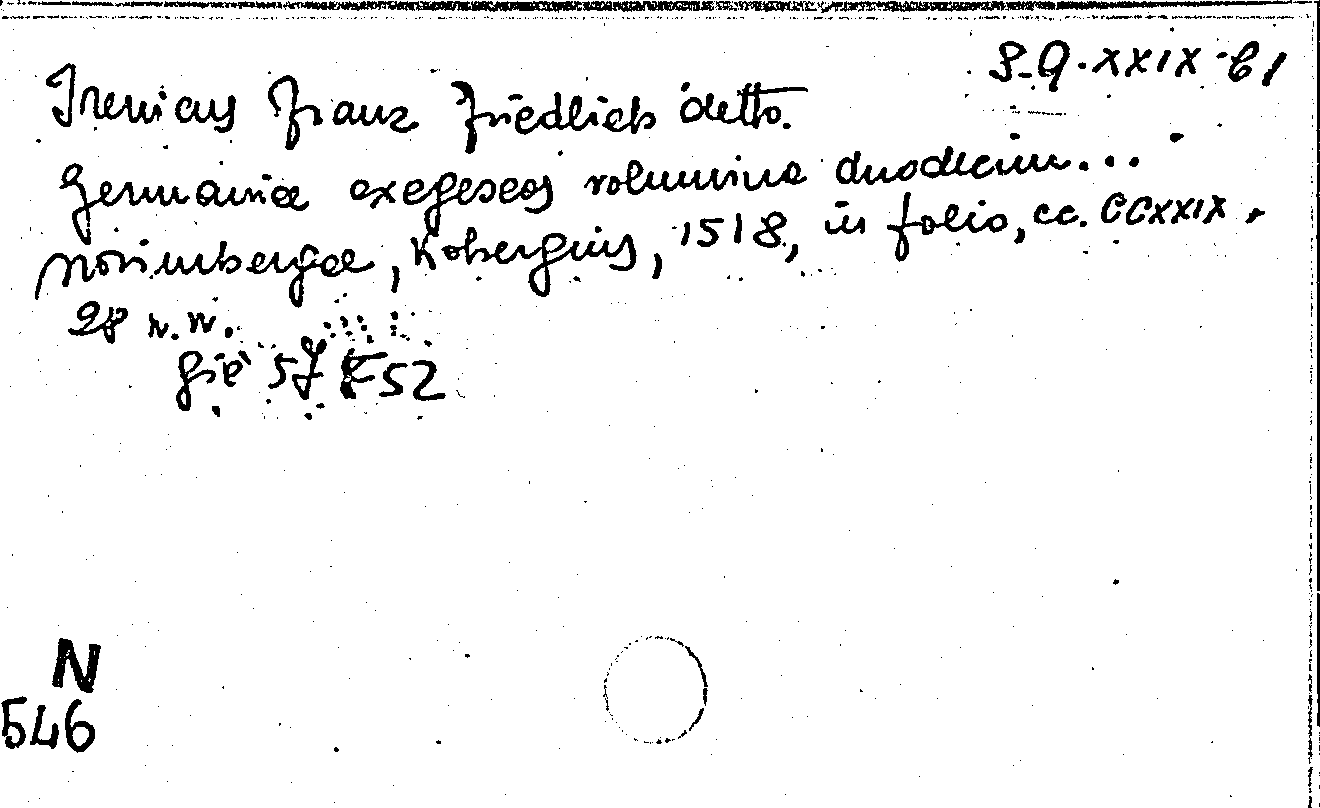 S.Q.XXIX.C1
Irenicus Franz Friedlieb detto.
Germaniæ exegeseos volumina duodecim...
Norimbergæ, Kobergius, 1518, in folio, cc. CCXXIX,
28 n.n.
già 57 E 52
N
546